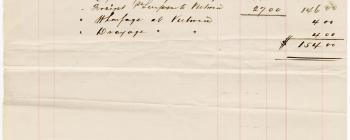 " Freight Pr Simpson to Victoria 27 00 146 00
" Wharfage at Victoria 4 00
" Drayage " " 4 00
$ 154 00